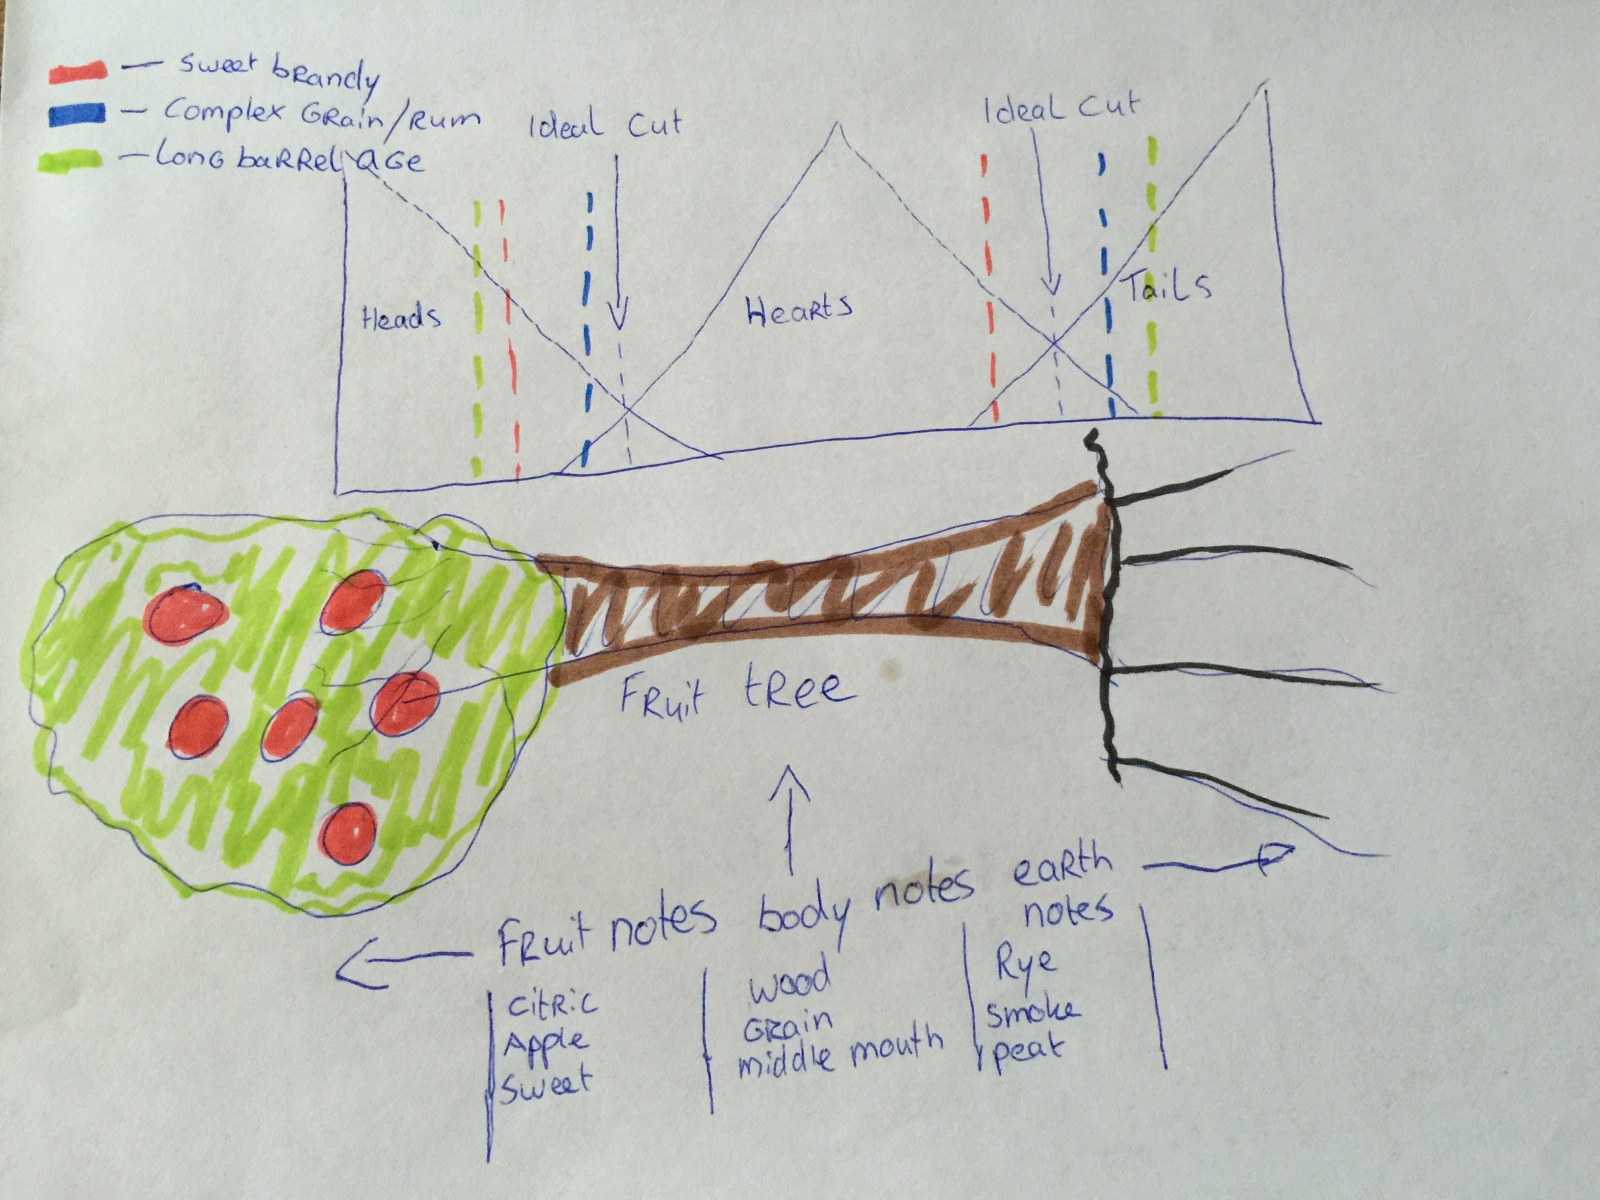 — Sweet brandy
— Complex Grain/Rum
— Long baRRel age
Ideal Cut
Ideal Cut
Heads
Hearts
Tails
Fruit tree
Fruit notes
body notes
earth
notes
Citric
Apple
Sweet
Wood
Grain
middle mouth
Rye
Smoke
peat